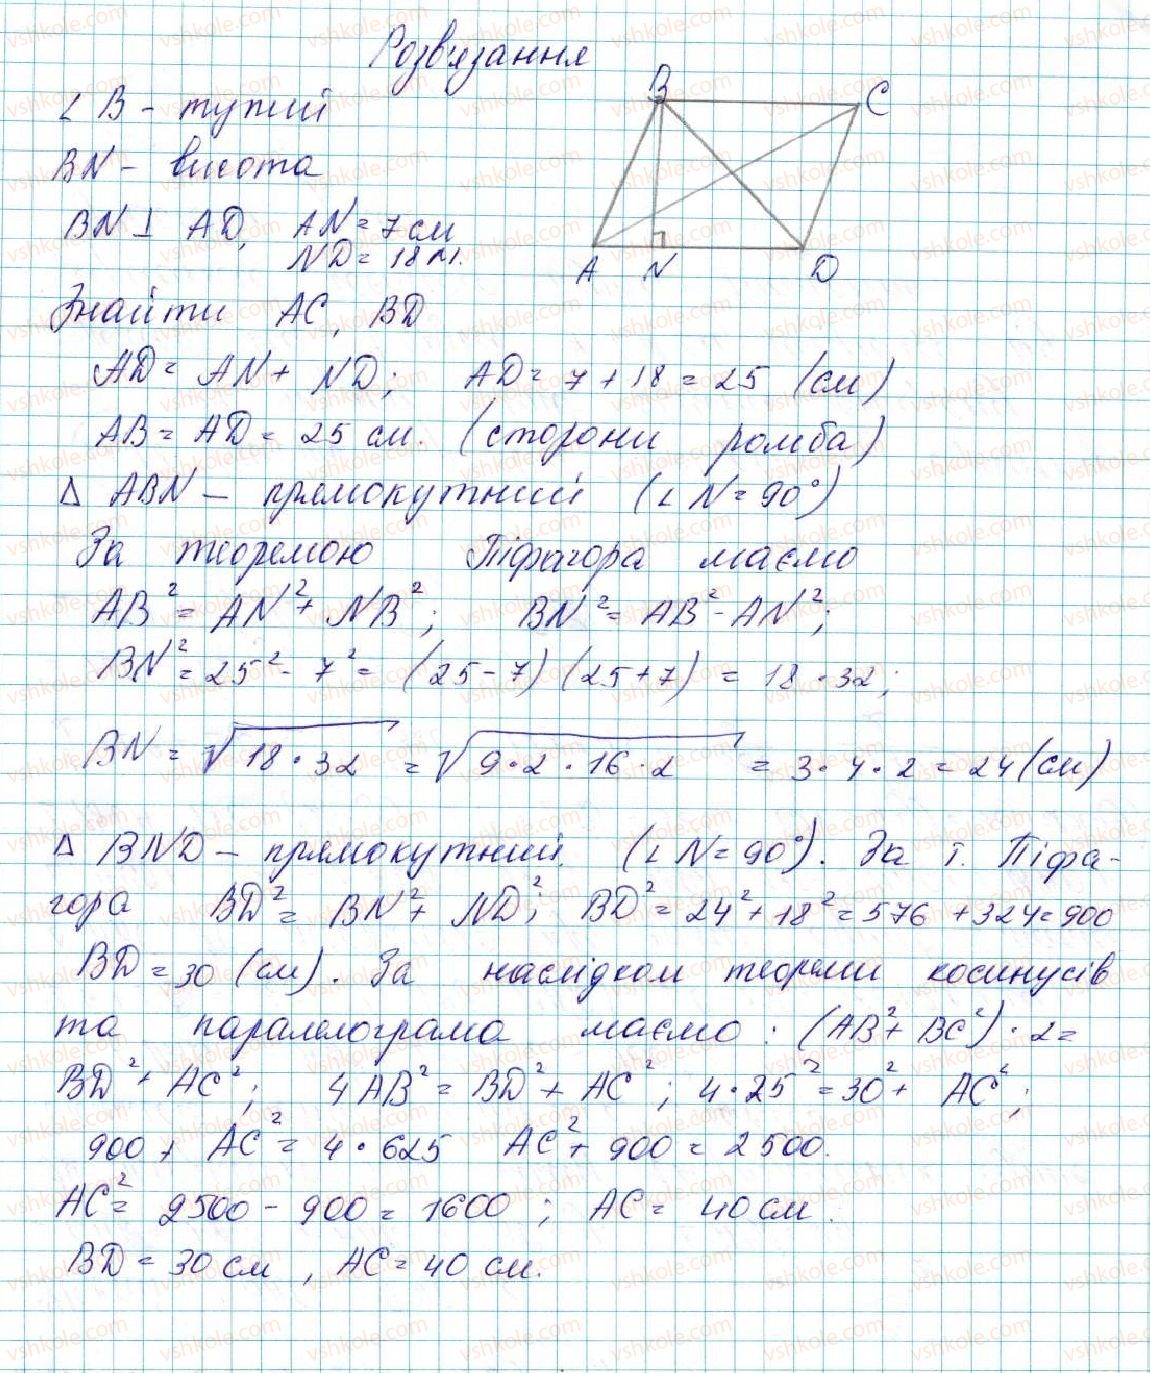 Розв'язання
∠ B - тупий
BN - висота
BN ⊥ AD, AN = 7 см
ND = 18 см.
Знайти AC, BD
AD = AN + ND; AD = 7 + 18 = 25 (см)
AB = AD = 25 см. (сторони ромба)
Δ ABN - прямокутний (∠ N = 90°)
За теоремою Піфагора маємо
AB² = AN² + NB²; BN² = AB² - AN²;
BN² = 25² - 7² = (25 - 7)(25 + 7) = 18 · 32;
BN = √18 · 32 = √9 · 2 · 16 · 2 = 3 · 4 · 2 = 24 (см)
Δ BND - прямокутний (∠ N = 90°). За т. Піфа-
гора BD² = BN² + ND²; BD² = 24² + 18² = 576 + 324 = 900
BD = 30 (см). За наслідком теореми косинусів
та паралелограма маємо: (AB² + BC²) · 2 =
BD² + AC²; 4AB² = BD² + AC²; 4 · 25² = 30² + AC²;
900 + AC² = 4 · 625 AC² + 900 = 2500.
AC² = 2500 - 900 = 1600; AC = 40 см.
BD = 30 см, AC = 40 см.
B
C
A
N
D
vshkole.com